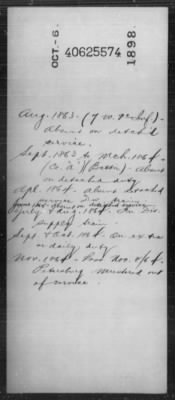 OCT. 6. 40625574 1898.
Aug. 1863. (7 W. Va Inf) -
Absent on detached
service.
Sept. 1863 to Mch. 1864 -
(Co. "A") - Absent
on detached duty.
Apl. 1864. Absent Detached
service Div. train
July & Aug. 1864. In Div.
supply train.
Sept. & Oct. 1864. On extra
or daily duty
Nov. 1864. Nov. 4/64.
Petersburg Mustered out
of service.